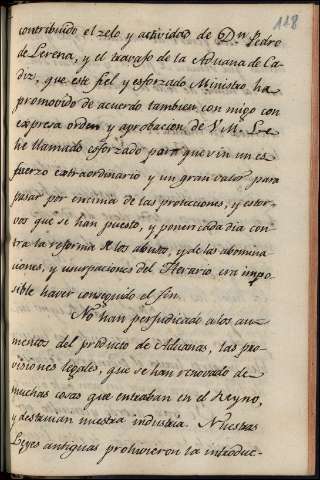 118
contribuido el zelo y actividad de Dn. Pedro
de Lerena, y el travajo de la Aduana de Ca-
diz, que este fiel y esforzado Ministro ha
promovido de acuerdo tambien con migo con
expresa orden y aprobacion de V. M. Le
he llamado esforzado porque sin un es
fuerzo extraordinario y un gran valor para
pasar por encima de las protecciones, y estor-
vos que se han puesto, y ponen cada dia con
tra la reforma de los abusos, y de las abomina
ciones, y usurpaciones del Herario, era impo
sible haver conseguido el fin.
No han perjudicado a los au-
mentos del producto de Aduanas, las pro-
visiones legales, que se han renovado de
muchas cosas que entraban en el Reyno,
y destruian nuestra industria. Nuestras
Leyes antiguas prohivieron la introduc-